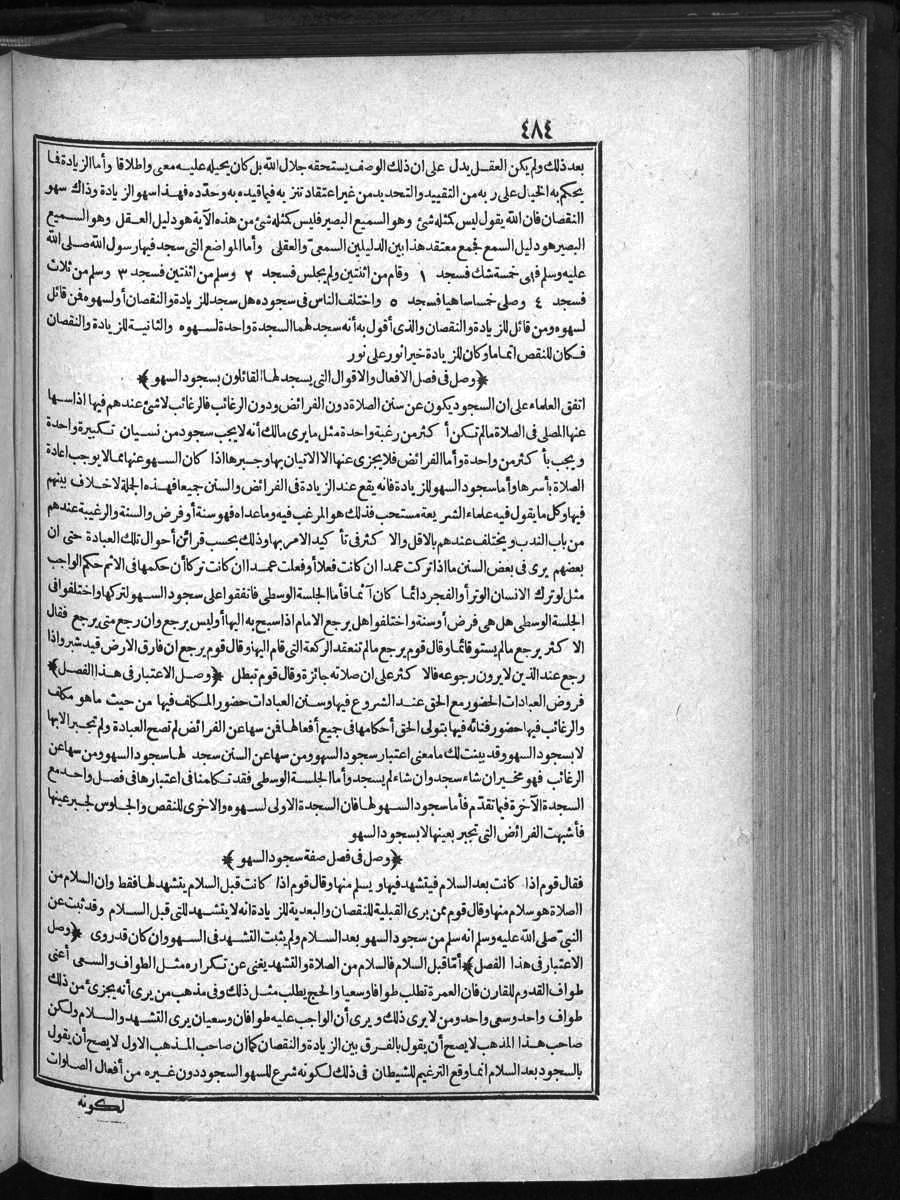 ٤٨٤
بعد ذلك ولم يكن العقل يدل على ان ذلك الوصف يستحقه جلال الله بل كان يحيله عليه معنى واطلاقا وأما الزيادة فما
يحكم به الخيال على ربه من التقييد والتحديد من غير اعتقاد تنزيه فيما قيده به وحدده فهذا سهو الزيادة وذاك سهو
النقصان فان الله يقول ليس كمثله شئ وهو السميع البصير فليس كمثله شئ من هذه الآية هو دليل العقل وهو السميع
البصير هو دليل السمع فجمع معتقد هذا بين الدليلين السمعى والعقلى وأما المواضع التى سجد فيها رسول الله صلى الله
عليه وسلم فهى خمسة شك فسجد ١ وقام من اثنتين ولم يجلس فسجد ٢ وسلم من اثنتين فسجد ٣ وسلم من ثلاث
فسجد ٤ وصلى خمسا ساهيا فسجد ٥ واختلف الناس فى سجوده هل سجد للزيادة والنقصان أو لسهوه فن قائل
لسهوه ومن قائل للزيادة والنقصان والذى أقول به أنه سجد لهما السجدة واحدة لسهوه والثانية للزيادة والنقصان
فكان للنقص اتماما وكان للزيادة خيرا نور على نور
﴿وصل فى فصل الافعال والاقوال التى يسجد لها القائلون بسجود السهو﴾
اتفق العلماء على ان السجود يكون عن سنن الصلاة دون الفرائض ودون الرغائب فالرغائب لا شئ عندهم فيها اذا سها
عنها المصلى فى الصلاة ما لم تكن أكثر من رغبة واحدة مثل ما يرى مالك أنه لا يجب سجود من نسيان تكبيرة واحدة
ويجب بأكثر من واحدة وأما الفرائض فلا يجزى عنها الا الاتيان بها وجبرها اذا كان السهو عنها مما لا يوجب اعادة
الصلاة بأسرها وأما سجود السهو للزيادة فانه يقع عند الزيادة فى الفرائض والسنن جميعا فهذه الجلة لا خلاف بينهم
فيها وكل ما يقول فيه علماء الشريعة مستحب فذلك هو المرغب فيه وما عداه فهو سنة أو فرض والسنة والرغيبة عندهم
من باب الندب ويختلف عندهم بالاقل والاكثر فى تأكيد الامر بها وذلك بحسب قرائن أحوال تلك العبادة حتى ان
بعضهم يرى فى بعض السنن ما اذا تركت عمدا ان كانت فعلا أو فعلت عمدا ان كانت تركا أن حكمها فى الاثم حكم الواجب
مثل لو ترك الانسان الوتر أو الفجر دائما كان آثما فأما الجلسة الوسطى فاتفقوا على سجود السهو لتركها واختلفوا فى
الجلسة الوسطى هل هى فرض أو سنة واختلفوا هل يرجع الامام اذا سبح به اليها أو ليس يرجع وان رجع متى يرجع فقال
الاكثر يرجع ما لم يستو قائما وقال قوم يرجع ما لم تنعقد الركعة التى قام اليها وقال قوم يرجع ان فارق الارض قيد شبر واذا
رجع عند الذين لا يرون رجوعه فالاكثر على ان صلاته جائزة وقال قوم تبطل ﴿وصل الاعتبار فى هذا الفصل﴾
فروض العبادات الحضور مع الحق عند الشروع فيها وسنن العبادات حضور المكلف فيها من حيث ما هو مكلف
والرغائب فيها حضور فنائه فيها بتولى الحق أحكامها فى جميع أفعالها فن سها عن الفرائض لم تصح العبادة ولم تجبر الا بها
لا بسجود السهو وقد بينت لك ما معنى اعتبار سجود السهو ومن سها عن السنن سجد لها سجود السهو ومن سها عن
الرغائب فهو مخير ان شاء سجد وان شاء لم يسجد وأما الجلسة الوسطى فقد تكلمنا فى اعتبارها فى فصل واحد مع
السجدة الآخرة فيما تقدم فأما سجود السهو لها فان السجدة الاولى لسهوه والاخرى للنقص والجلوس لجبر عينها
فأشبهت الفرائض التى تجبر بعينها لا بسجود السهو
﴿وصل فى فصل صفة سجود السهو﴾
فقال قوم اذا كانت بعد السلام فيتشهد فيها ويسلم منها وقال قوم اذا كانت قبل السلام يتشهد لها فقط وان السلام من
الصلاة هو سلام منها وقال قوم ممن يرى القبلية للنقصان والبعدية للزيادة انه لا يتشهد للتى قبل السلام وقد ثبت عن
النبى صلى الله عليه وسلم انه سلم من سجود السهو بعد السلام ولم يثبت التشهد فى السهو وان كان قد روى ﴿وصل
الاعتبار فى هذا الفصل﴾ أما قبل السلام فالسلام من الصلاة والتشهد يغنى عن تكراره مثل الطواف والسعى أعنى
طواف القدوم للقارن فان العمرة تطلب طوافا وسعيا والحج يطلب مثل ذلك وفى مذهب من يرى أنه يجزئ من ذلك
طواف واحد وسعى واحد ومن لا يرى ذلك ويرى أن الواجب عليه طوافان وسعيان يرى التشهد والسلام ولكن
صاحب هذا المذهب لا يصح أن يقول بالفرق بين الزيادة والنقصان كما ان صاحب المذهب الاول لا يصح أن يقول
بالسجود بعد السلام انما وقع الترغيم للشيطان فى ذلك لكونه شرع للسهو السجود دون غيره من أفعال الصلوات
لكونه